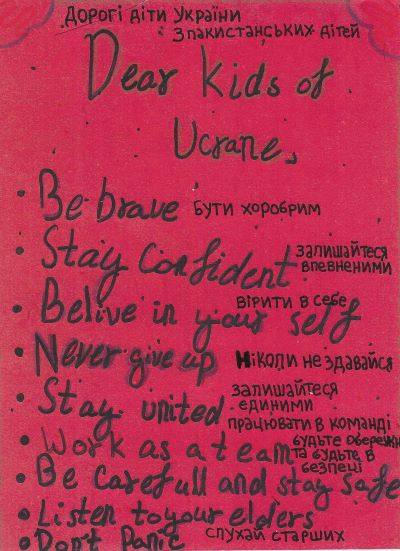 Дорогі діти України
З пакистанських дітей
Dear Kids of
Ucrane,
• Be brave бути хоробрим
• Stay Confident залишайтеся впевненими
• Belive in your self вірити в себе
• Never give up Ніколи не здавайся
• Stay united залишайтеся єдиними
• Work as a team працювати в команді
• Be Carefull and stay safe будьте обережні та будьте в безпеці
• Listen to your elders слухай старших
• Don't Panic